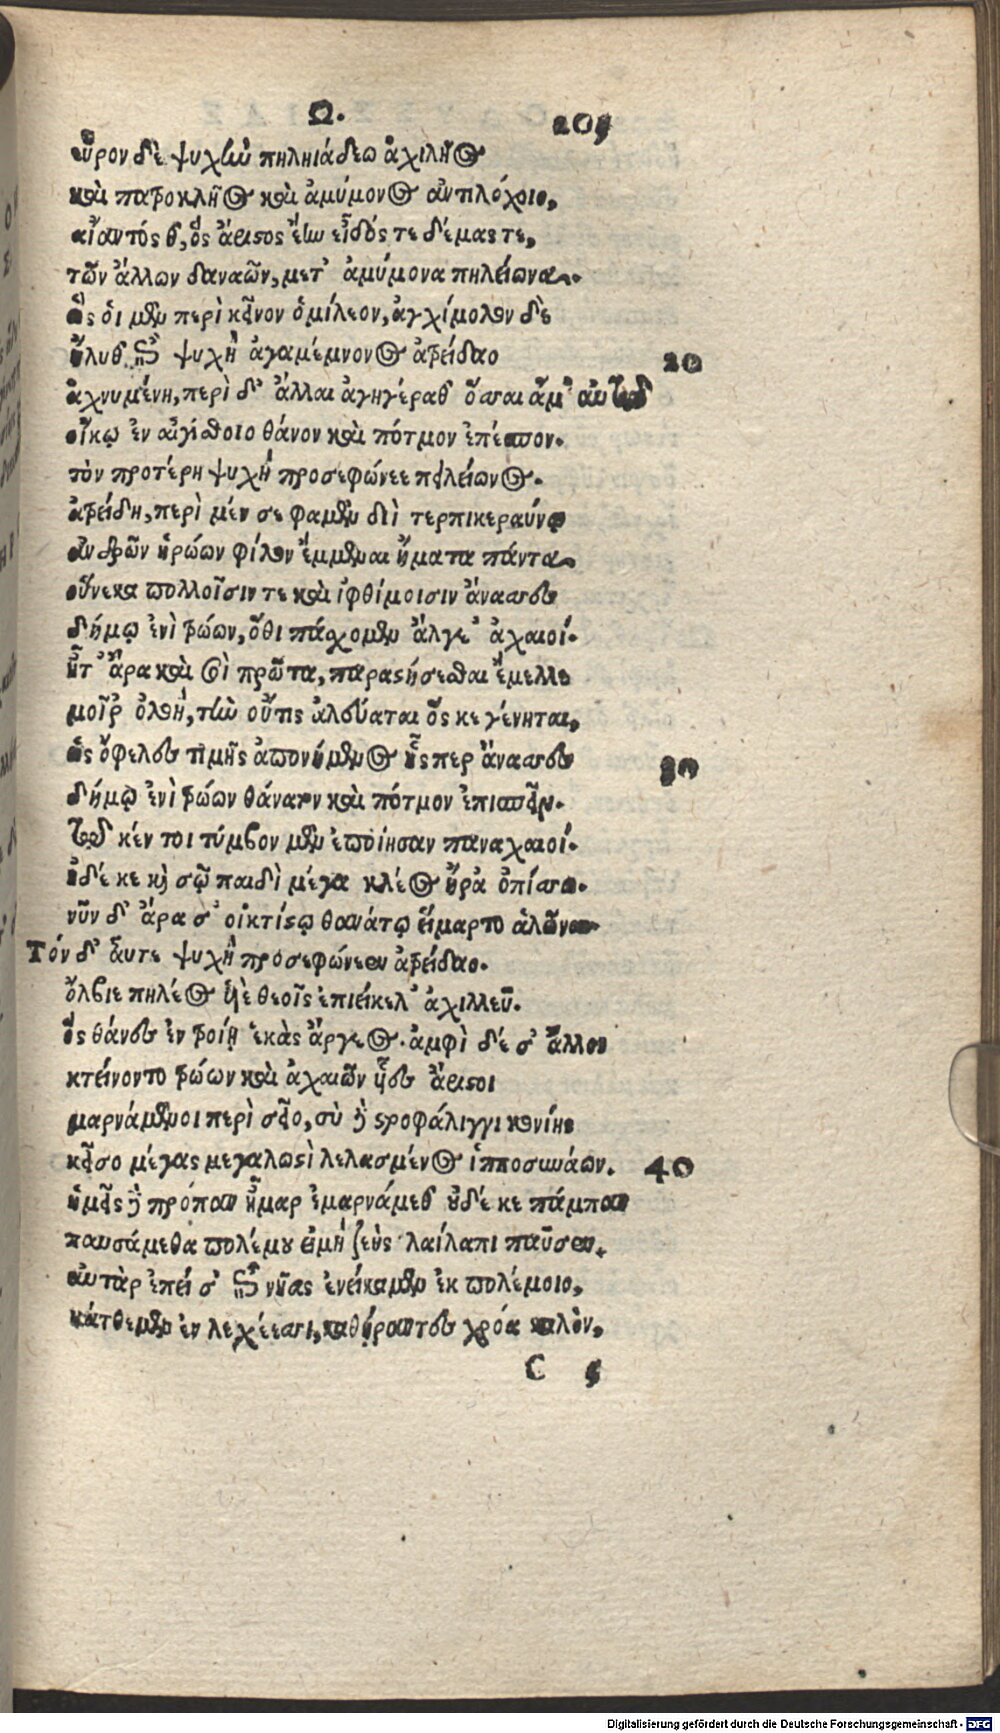 Ω. 205
εὗρον δὲ ψυχὴν πηληιάδεω ἀχιλῆος
καὶ πατροκλῆος καὶ ἀμύμονος ἀντιλόχοιο,
αἴαντός θ, ὃς ἄριστος ἔην εἶδός τε δέμας τε,
τῶν ἄλλων δαναῶν, μετ' ἀμύμονα πηλείωνα.
ὣς οἱ μὲν περὶ κεῖνον ὁμίλεον, ἀγχίμολον δὲ
ἤλυθ' ἐπὶ ψυχὴ ἀγαμέμνονος ἀτρείδαο 20
ἀχνυμένη, περὶ δ' ἄλλαι ἀγηγέραθ' ὅσσαι ἅμ' αὐτῷ
οἴκῳ ἐν αἰγίσθοιο θάνον καὶ πότμον ἐπέσπον.
τὸν προτέρη ψυχὴ προσεφώνεε πηλείωνος.
ἀτρείδη, περὶ μέν σε φαμὲν διὶ τερπικεραύνῳ
ἀνδρῶν ἡρώων φίλον ἔμμεναι ἤματα πάντα
οὕνεκα πολλοῖσίν τε καὶ ἰφθίμοισιν ἄνασσες
δήμῳ ἐνὶ τρώων, ὅθι πάσχομεν ἄλγε' ἀχαιοί.
ἦτ' ἄρα καὶ σοὶ πρῶτα, παραστήσεσθαι ἔμελλε
μοῖρ' ὀλοὴ, τὴν οὔτις ἀλεύαται ὅς κε γένηται,
ὡς ὄφελες τιμῆς ἀπονήμενος ἧς περ ἄνασσες 30
δήμῳ ἐνὶ τρώων θάνατον καὶ πότμον ἐπισπεῖν.
τῷ κέν τοι τύμβον μὲν ἐποίησαν παναχαιοί.
ἠδέ κε καὶ σῷ παιδὶ μέγα κλέος ἤρα ὀπίσσω.
νῦν δ' ἄρα σ' οἰκτίστῳ θανάτῳ εἵμαρτο ἁλῶναι.
Τόν δ' αὖτε ψυχὴ προσεφώνεεν ἀτρείδαο.
ὄλβιε πηλέος υἱὲ θεοῖς ἐπιείκελ' ἀχιλλεῦ.
ὃς θάνες ἐν τροίῃ ἑκὰς ἄργεος. ἀμφὶ δέ σ' ἄλλοι
κτείνοντο τρώων καὶ ἀχαιῶν υἷες ἄριστοι
μαρνάμενοι περὶ σεῖο, σὺ δὲ στροφάλιγγι κονίης
κεῖσο μέγας μεγαλωστὶ λελασμένος ἱπποσυνάων. 40
ἡμεῖς δὲ πρόπαν ἦμαρ ἐμαρνάμεθ' οὐδέ κε πάμπαν
παυσάμεθα πολέμου εἰ μὴ ζεὺς λαίλαπι παῦσεν.
αὐτὰρ ἐπεί σ' ἐπὶ νῆας ἐνείκαμεν ἐκ πολέμοιο,
κάτθεμεν ἐν λεχέεσσι, καθήραντες χρόα καλὸν,
C 5
Digitalisierung gefördert durch die Deutsche Forschungsgemeinschaft - DFG